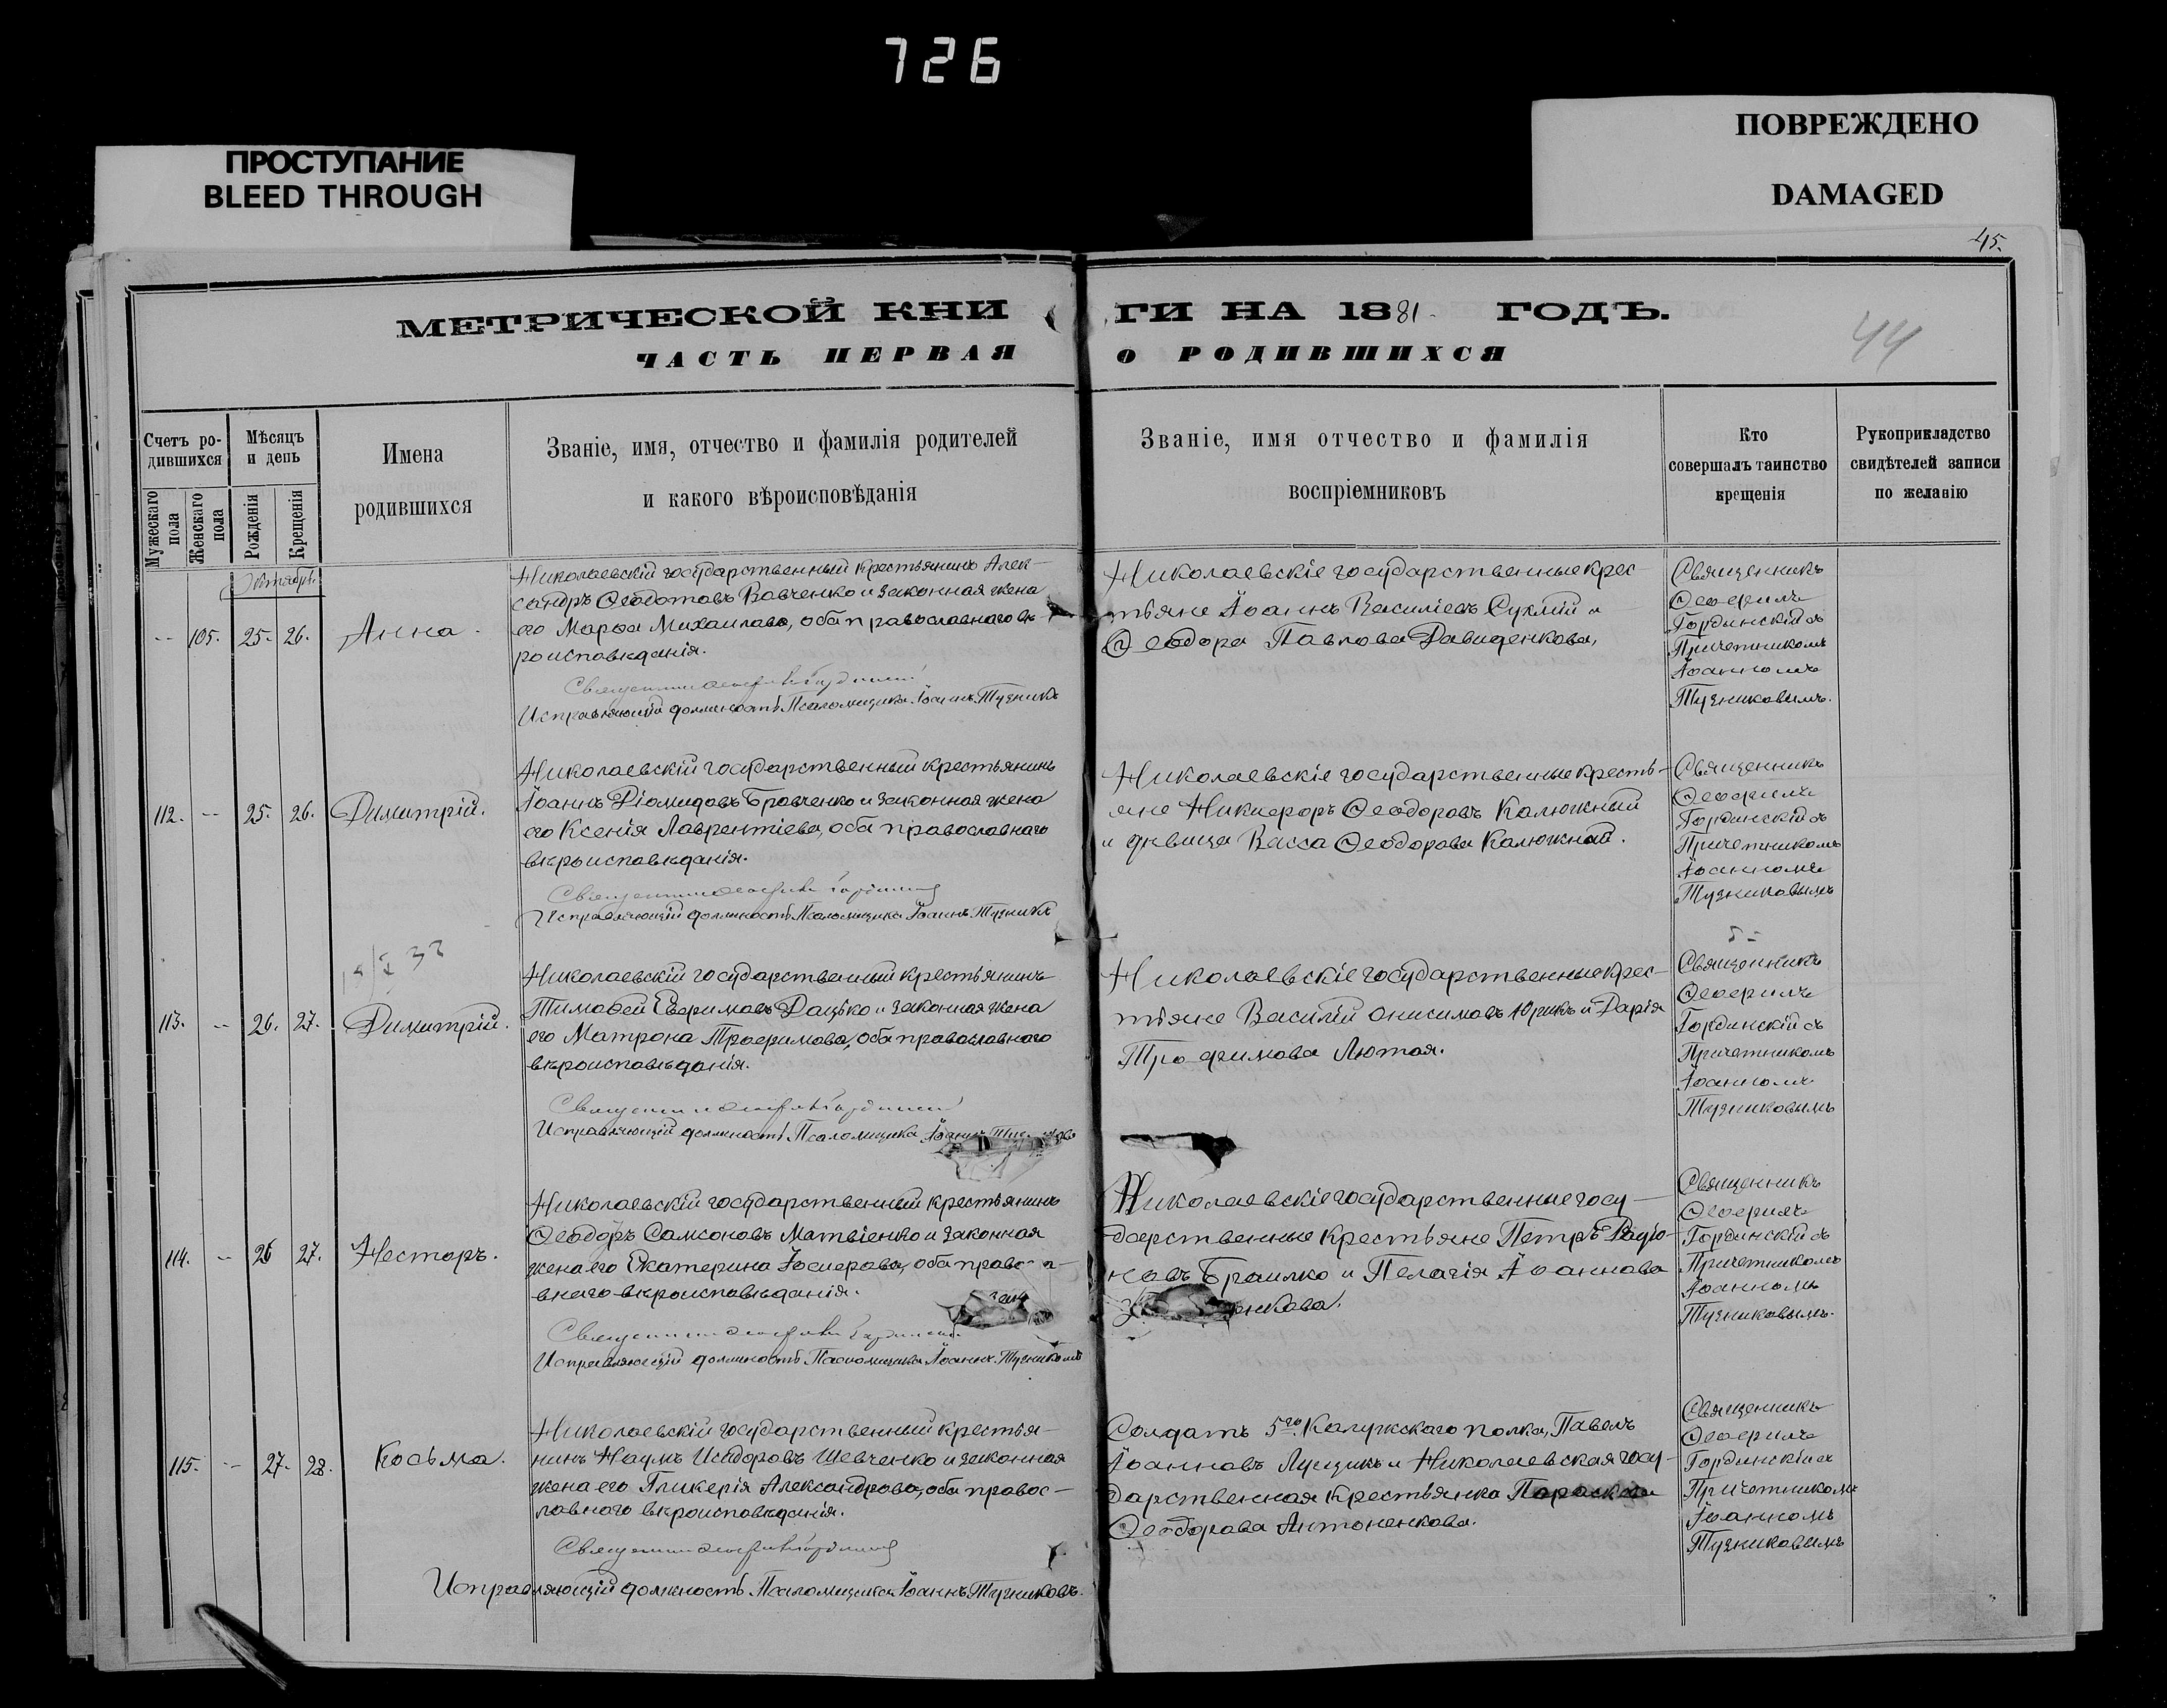 726
ПРОСТУПАНИЕ
BLEED THROUGH
ПОВРЕЖДЕНО
DAMAGED
45.
МЕТРИЧЕСКОЙ КНИ
ГИ НА 1881 ГОДЪ.
44
ЧАСТЬ ПЕРВАЯ
О РОДИВШИХСЯ
Счетъ ро-
дившихся
Мужескаго пола
Женскаго пола
Мѣсяцъ
и день
Рожденія
Крещенія
Имена
родившихся
Званіе, имя, отчество и фамилія родителей
и какого вѣроисповѣданія
Званіе, имя отчество и фамилія
воспріемниковъ
Кто
совершалъ таинство
крещенія
Рукоприкладство
свидѣтелей записи
по желанію
Октябрь
-- 105. 25. 26. Анна.
Николаевскій государственный крестьянинъ Алек-
сандръ Ѳеодотовъ Вовченко и законная жена
его Марѳа Михаилова, оба православнаго вѣ-
роисповѣданія.
Исправляющій должность Псаломщика Іоаннъ
Николаевскіе государственные крес-
тьяне Іоаннъ Василіевъ и
Ѳеодора Павлова Давиденкова,
Священникъ
Ѳеофилъ
Гординскій съ
Причетникомъ
Іоанномъ
Тузниковымъ.
112. -- 25. 26. Димитрій.
Николаевскій государственный крестьянинъ
Іоаннъ Діомидовъ Бровченко и законная жена
его Ксенія Лаврентіева, оба православнаго
вѣроисповѣданія.
Исправляющій должность Псаломщика Іоаннъ
Николаевскіе государственные кресть-
яне Никифоръ Ѳеодоровъ Калюжный
и дѣвица Васса Ѳеодорова Калюжная.
Священникъ
Ѳеофилъ
Гординскій съ
Причетникомъ
Іоанномъ
Тузниковымъ
113. -- 26. 27. Димитрій.
Николаевскій государственный крестьянинъ
Тимоѳей Евфимовъ Дацько и законная жена
его Матрона Трофимова, оба православнаго
вѣроисповѣданія.
Исправляющій должность Псаломщика Іоаннъ
Николаевскіе государственные крес-
тьяне Василій Онисимовъ Юрикъ и Дарія
Трофимова Лютая.
Священникъ
Ѳеофилъ
Гординскій съ
Причетникомъ
Іоанномъ
Тузниковымъ
114. -- 26 27. Несторъ.
Николаевскій государственный крестьянинъ
Ѳеодоръ Самсоновъ Матвіенко и законная
жена его Екатерина Іосифова, оба право
внаго вѣроисповѣданія.
Исправляющій должность Псаломщика Іоаннъ
Николаевскіе государственные госу-
дарственные крестьяне Петръ Родіо-
новъ Браилко и Пелагія Іоаннова
Священникъ
Ѳеофилъ
Гординскій съ
Причетникомъ
Іоанномъ
Тузниковымъ.
115. -- 27. 28. Косьма.
Николаевскій государственный крестья-
нинъ Наумъ Исидоровъ Шевченко и законная
жена его Гликерія Александрова, оба правос-
лавнаго вѣроисповѣданія.
Исправляющій должность Псаломщика Іоаннъ Тузниковъ.
Солдатъ 5го Калужскаго полка, Павелъ
Іоанновъ и Николаевская госу-
дарственная крестьянка Параскева
Ѳеодорова Антоненкова.
Священникъ
Ѳеофилъ
Гординскій съ
Причетникомъ
Іоанномъ
Тузниковымъ